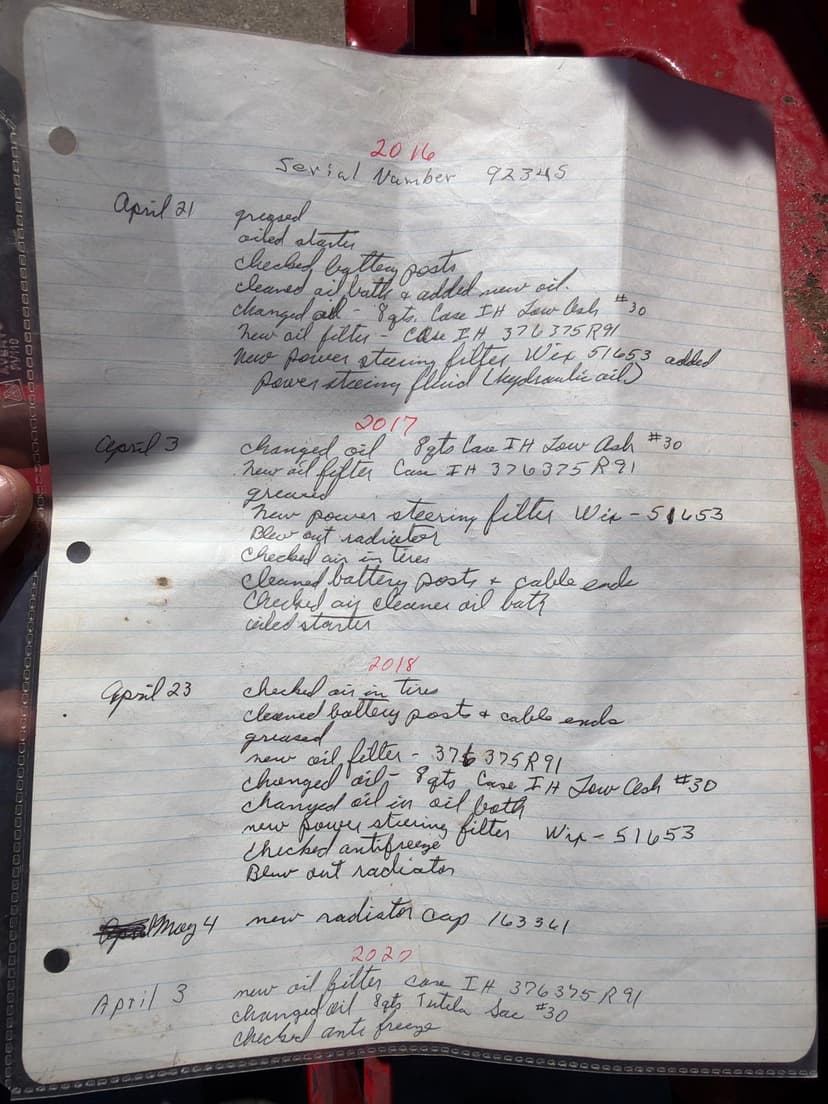 2016
Serial Number 92345
April 21 greased
oiled starter
checked battery posts
cleaned oil bath & added new oil.
changed oil - 8 qts. Case IH Low Ash #30
new oil filter - Case IH 376375R91
new power steering filter Wix 51653 added
power steering fluid (hydraulic oil)
2017
April 3 changed oil 8 qts Case IH Low Ash #30
new oil filter Case IH 376375R91
greased
new power steering filter Wix - 51653
Blew out radiator
checked air in tires
cleaned battery posts + cable ends
checked air cleaner oil bath
oiled starter
2018
April 23 checked air in tires
cleaned battery posts + cable ends
greased
new oil filter - 376375R91
changed oil - 8 qts Case IH Low Ash #30
changed oil in oil bath
new power steering filter Wix - 51653
checked antifreeze
Blew out radiator
May 4 new radiator cap 163361
2020
April 3 new oil filter case IH 376375R91
changed oil 8 qts Tutela Sae #30
checked anti freeze